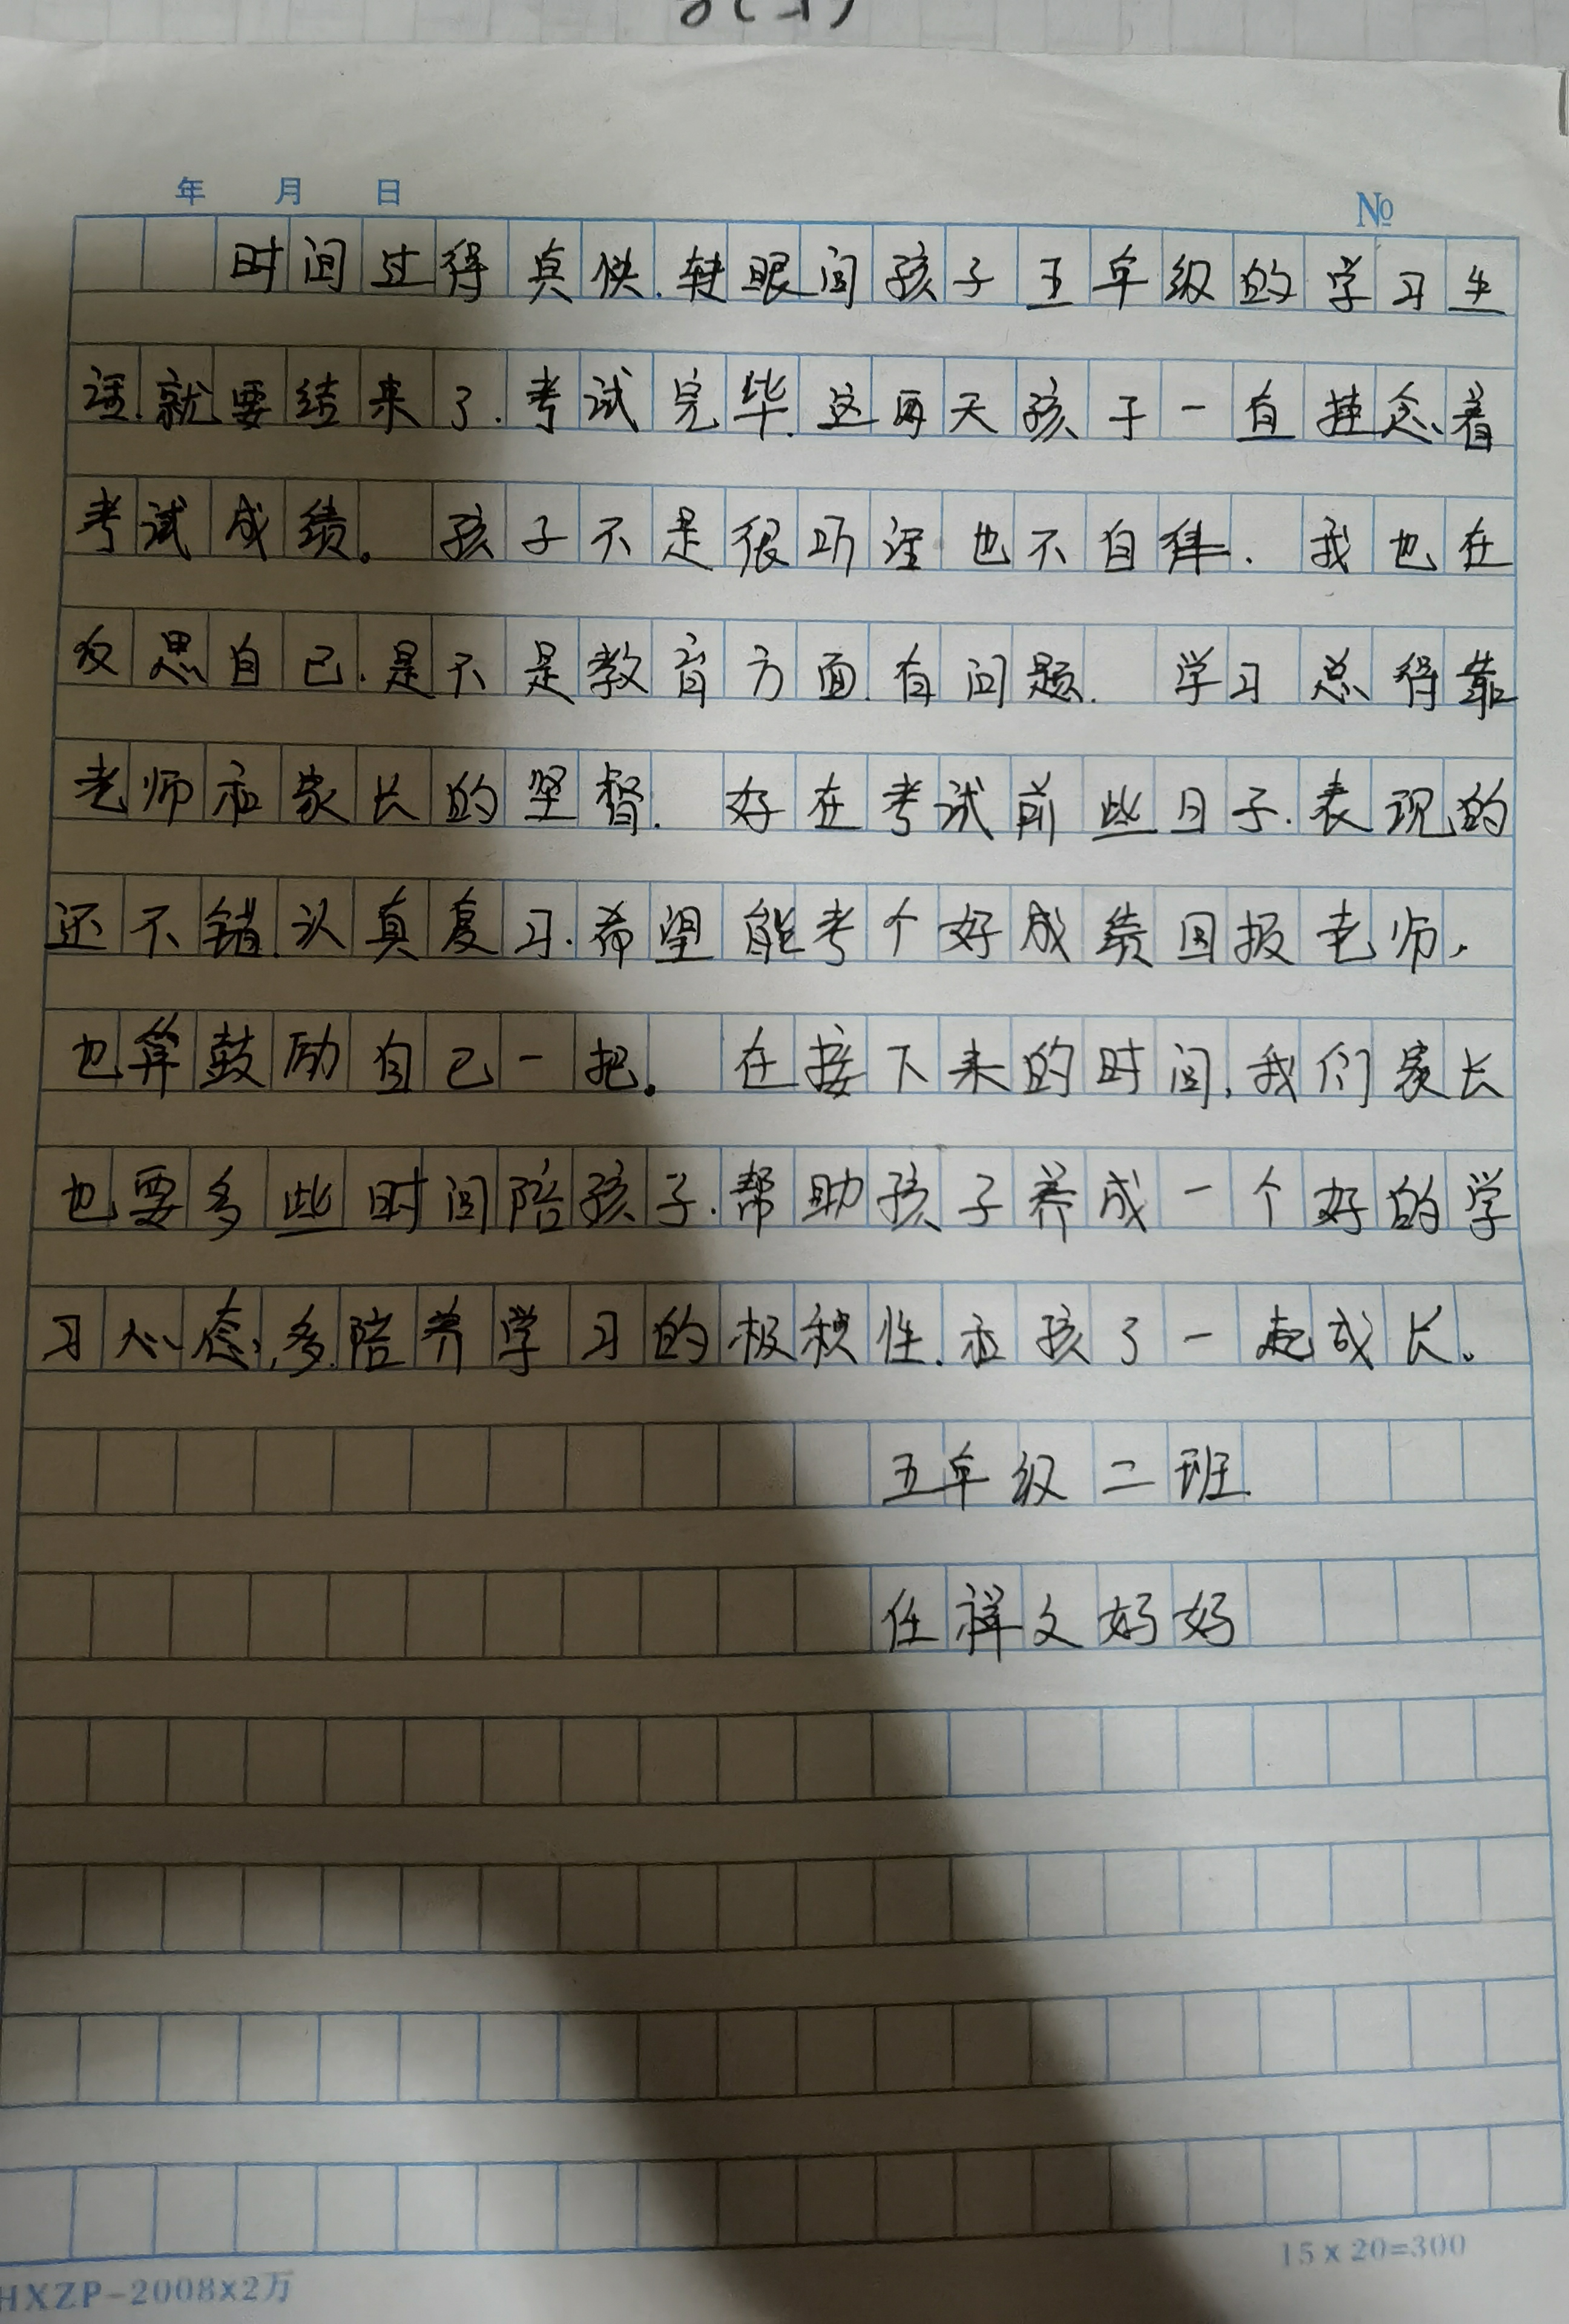 年 月 日 №
时间过得真快.转眼间孩子五年级的学习生
话.就要结来了.考试完毕.这两天孩子一直挂念着
考试成绩。孩子不是很听话也不自律.我也在
反思自己.是不是教育方面有问题.学习总得靠
老师和家长的坚督.好在考试前些日子.表现的
还不错.认真复习.希望能考个好成绩回报老师,
也算鼓励自己一把。在接下来的时间,我们家长
也要多些时间陪孩子.帮助孩子养成一个好的学
习心态,多陪养学习的极积性.和孩子一起成长。
五年级二班
任祥文妈妈
15×20=300
HXZP-2008×2万